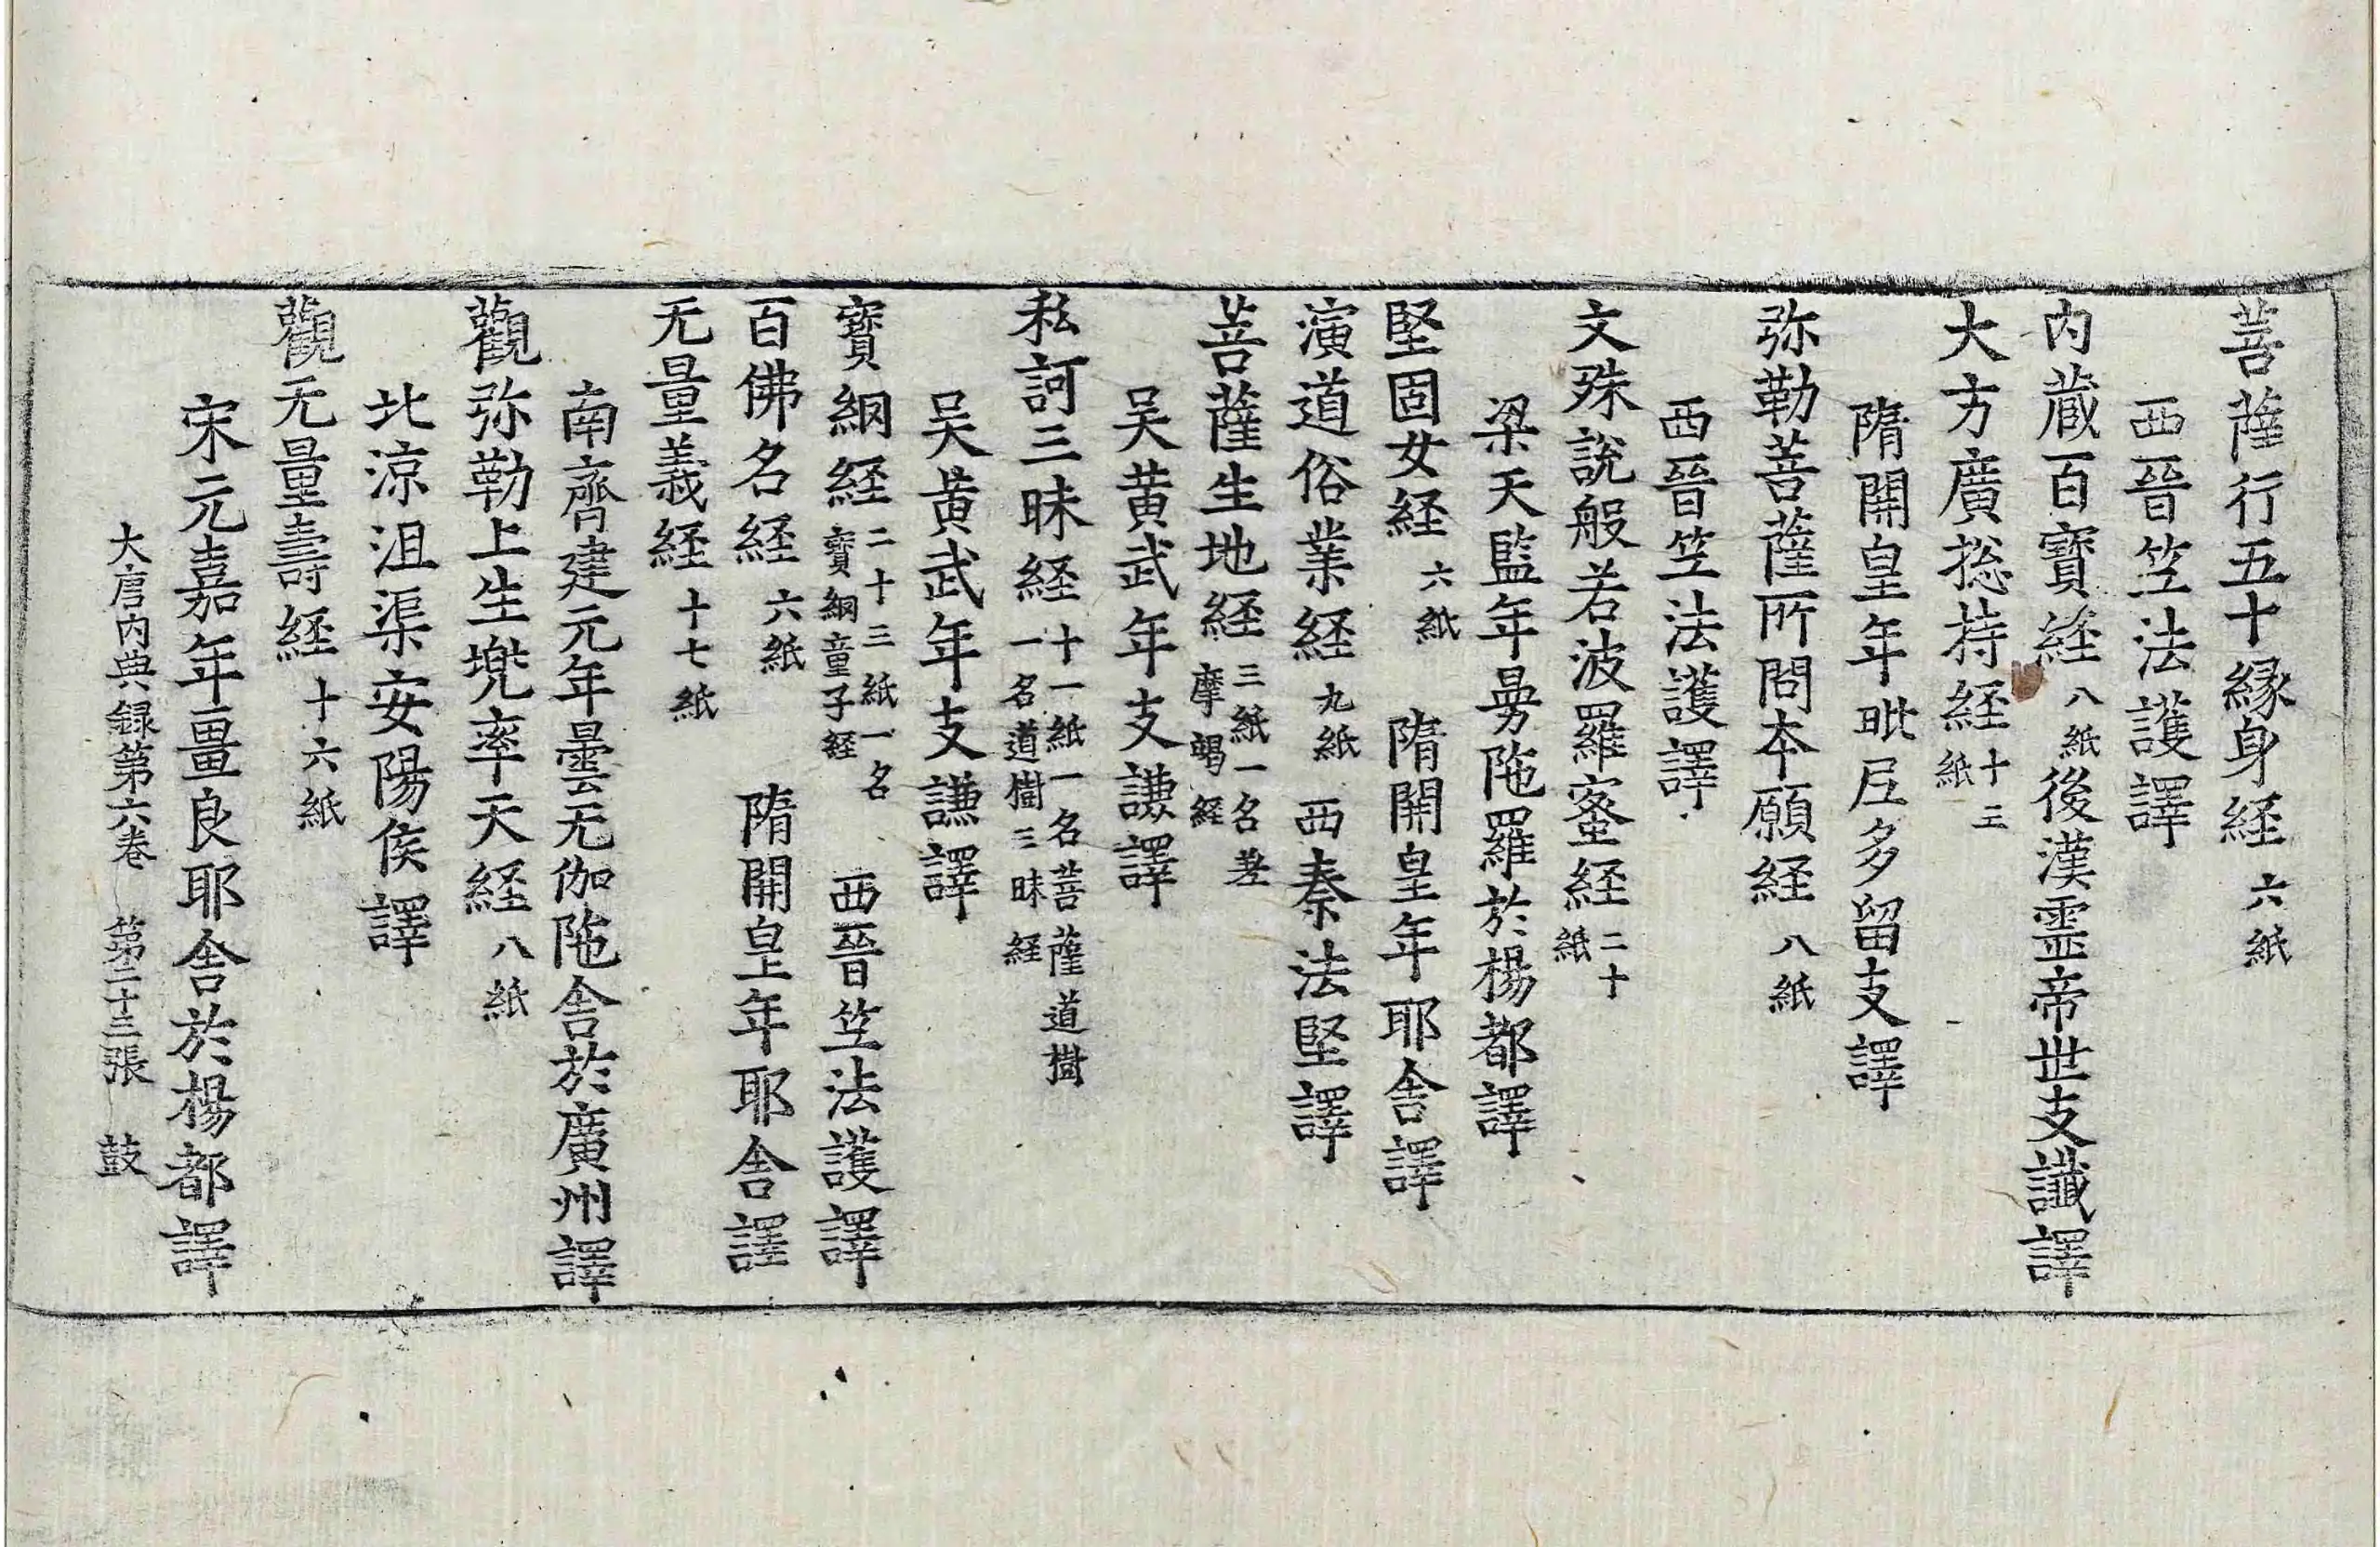 菩薩行五十縁身経六紙
西晉笁法護譯
内蔵百寶経八紙後漢靈帝世支讖譯
大方廣捴持経十三紙
隋開皇年毗𡰱多留支譯
弥勒菩薩所問夲願経八紙
西晉笁法護譯
文殊說般若波羅蜜経二十紙
梁天監年曼陁羅於楊都譯
堅固女経六紙 隋開皇年耶舎譯
演道俗業経九紙 西秦法堅譯
菩薩生地経三紙一名差摩竭経
吴黄武年支謙譯
私訶三昧経十一紙一名菩薩道樹一名道樹三昧経
吴黄武年支謙譯
寶網経二十三紙一名寶網童子経 西晉笁法護譯
百佛名経六紙 隋開皇年耶舎譯
无量義経十七紙
南齊建元年曇无伽陁舎於廣州譯
觀弥勒上生兠率天経八紙
北涼沮渠安陽侯譯
觀无量壽経十六紙
宋元嘉年畺良耶舎於楊都譯
大唐内典録第六巻 第二十三張 鼓